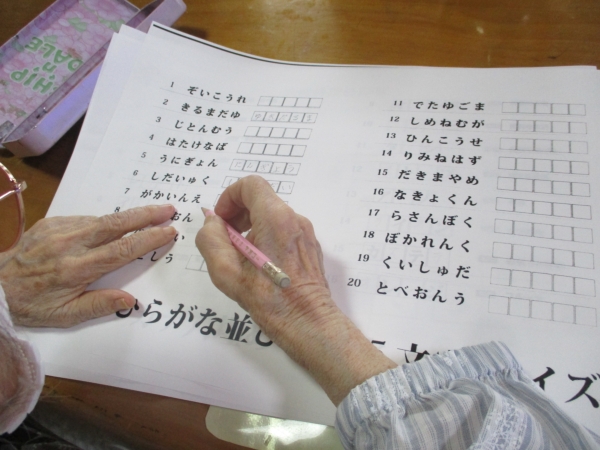 CHIP
n
DALE
1 ぞいこうれ
2 きるまだゆ
3 じとんむう
4 はたけなば
5 うにぎょん
6 しだいゅく
7 がかいんえ
8
おん
い
しう
11 でたゆごま
12 しめねむが
13 ひんこうせ
14 りみねはず
15 だきまやめ
16 なきょくん
17 らさんぼく
18 ぼかれんく
19 くいしゅだ
20 とべおんう
ひらがな並び
イズ